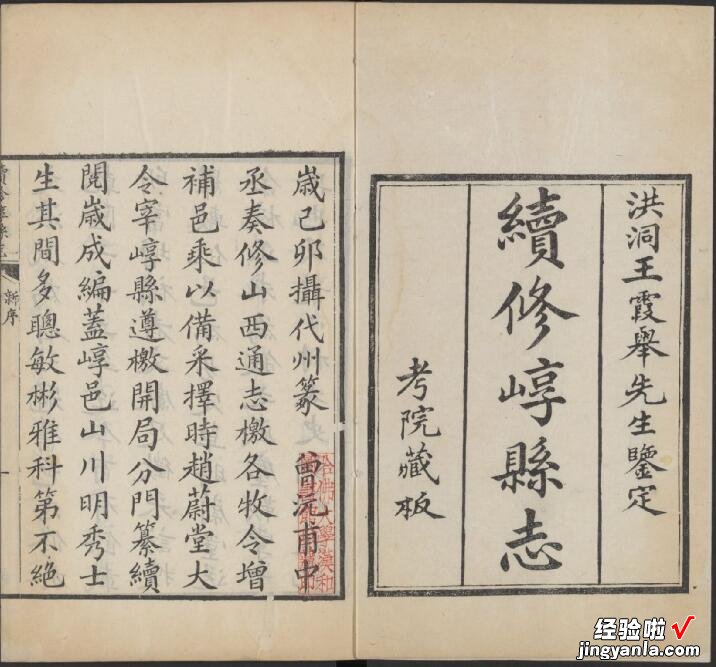 洪洞王霞舉先生鑒定
續修崞縣志
考院藏板
歲己卯攝代州篆曾沅甫中
丞奏修山西通志檄各牧令增
補邑乘以備采擇時趙蔚堂大
令宰崞縣遵檄開局分門纂續
閱歲成編蓋崞邑山川明秀士
生其間多聰敏彬雅科第不絕
新序
一
哈佛大學漢和
经验啦√
jingyanla.com